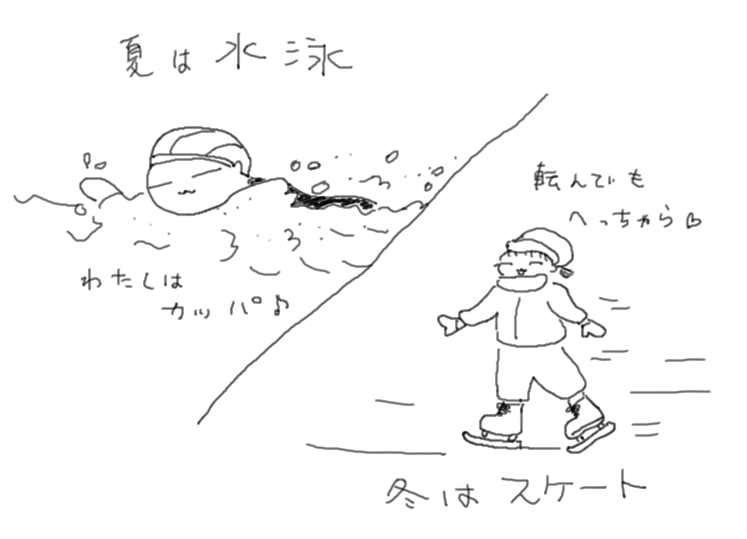 夏は水泳
わたしは
カッパ♪
転んでも
へっちゃら♡
冬はスケート